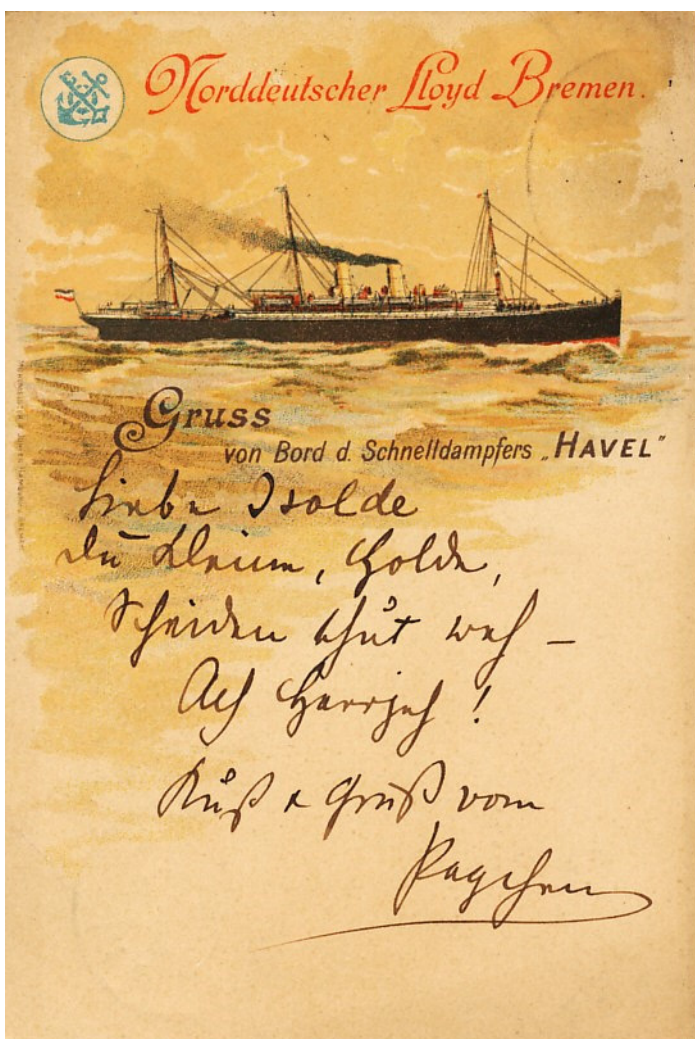 Norddeutscher Lloyd Bremen.
Gruss
von Bord d. Schnelldampfers „HAVEL"
Liebe Isolde
du kleine, holde,
Scheiden thut weh –
Ach Herrjeh!
Kuß & Gruß vom
Papchen